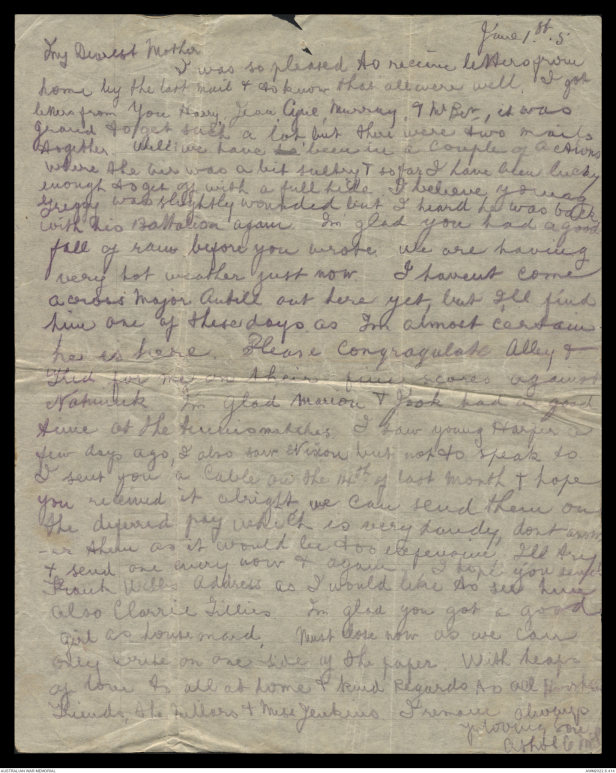 June 1st. 5
My Dearest Mother
I was so pleased to receive letters from
home by the last mail & to know that all were well. I got
letters from You Harry, Jean, Murray, & it was
grand to get such a lot but there were two mails
together. Well we have been in a couple of actions
where the was a bit sultry & so far I have been lucky
enough to get off with a full hide. I believe young
Greggy was slightly wounded but I heard he was back
with his Battalion again. Im glad you had a good
fall of rain before you wrote we are having
very hot weather just now. I havent come
across Major Antill out here yet, but I'll find
him one of these days as Im almost certain
he is here. Please congragulate Alley &
for me on their fine scores against
Im glad Marion & Jook had a good
time at the tennis matches. I saw young Harper a
few days ago, I also saw Nixon but not to speak to
I sent you a Cable on the of last month & hope
you received it alright we can send them on
the deferred pay which is very handy, dont answ
-er them as it would be too expensive. I'll try
& send one every now & again. I hope you send
Frank Wells Address as I would like to see him
also Clarrie Tillies. Im glad you got a good
girl as housemaid. Must close now as we can
only write on one side of the paper. With heaps
of love to all at home & kind regards to all
Friends, the Fullers & Miss Jenkins I remain always
yr loving son
AUSTRALIAN WAR MEMORIAL